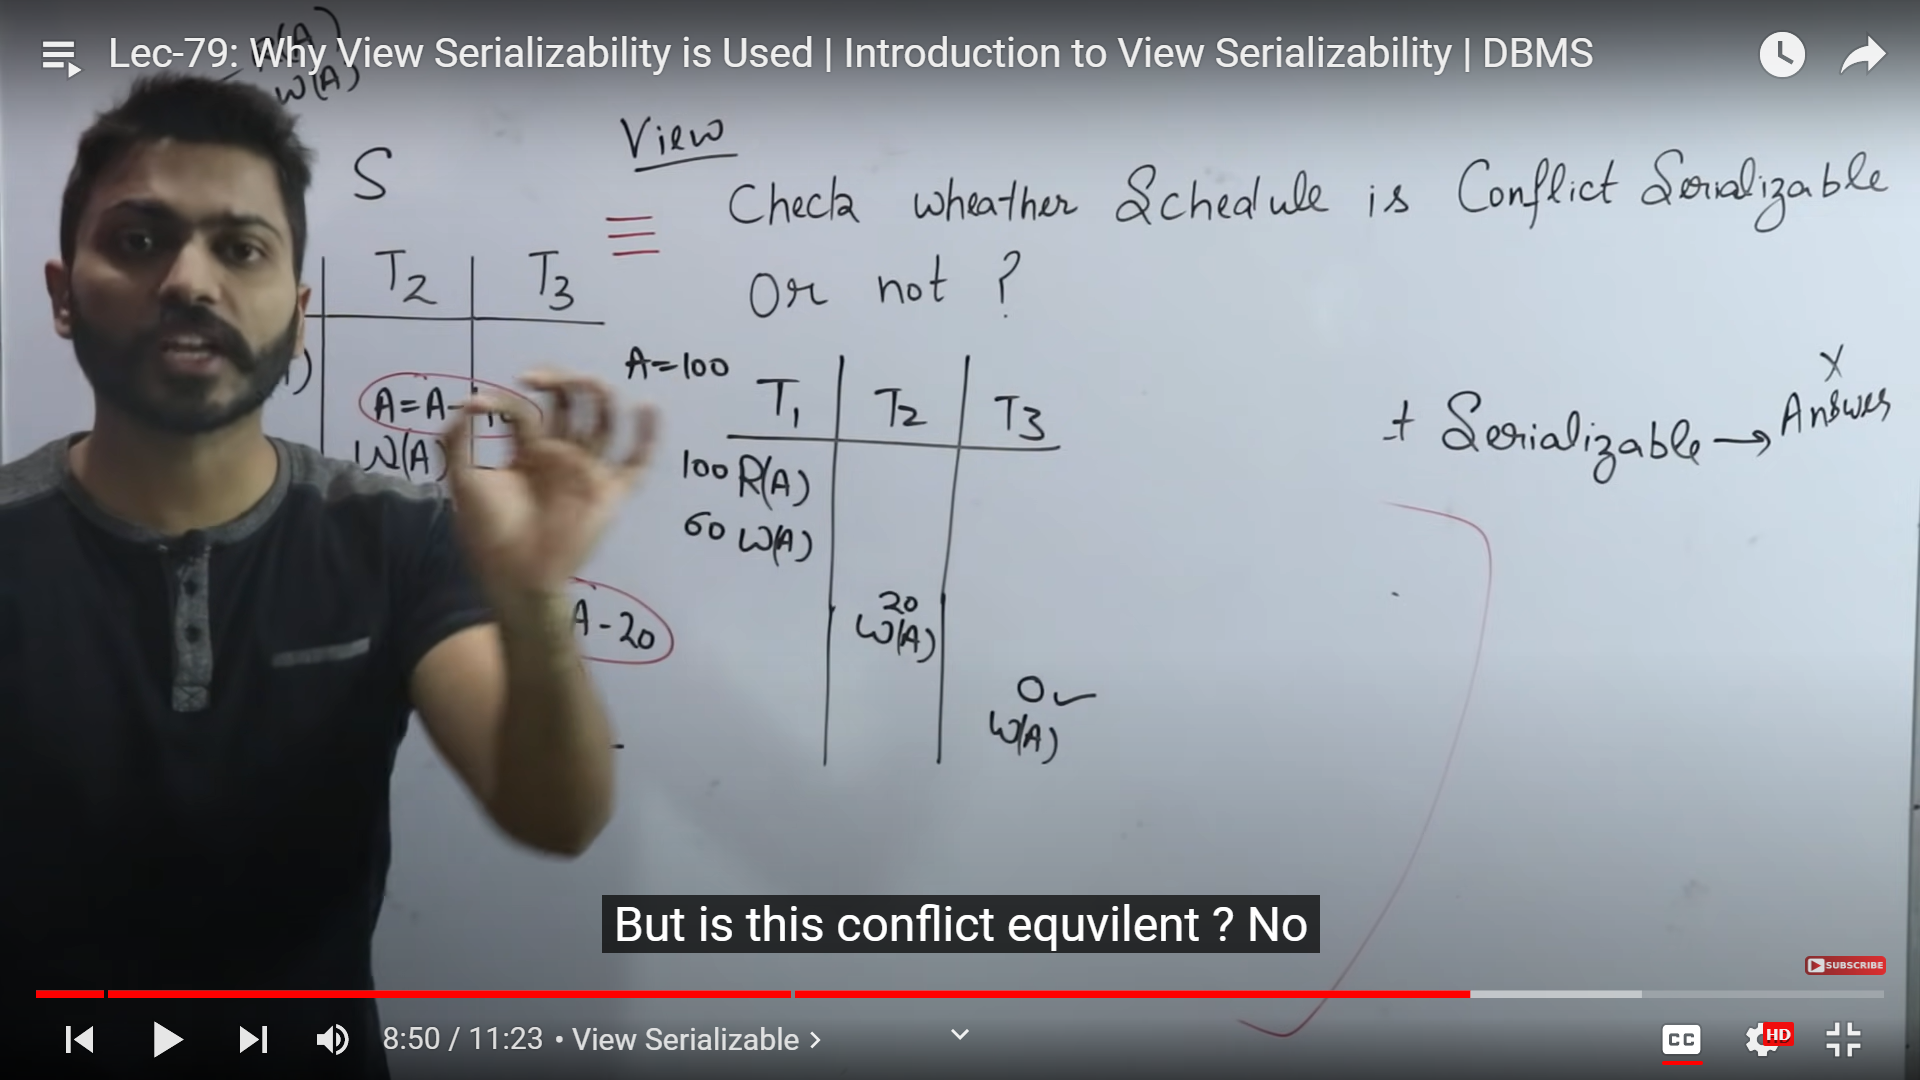 Lec-79: Why View Serializability is Used | Introduction to View Serializability | DBMS
R(A)
W(A)
S
View
Check wheather Schedule is Conflict Serializable
Or not ?
T2 T3
A=A-
W(A)
A-20
A=100
T1 T2 T3
100 R(A)
60 W(A)
20
W(A)
0 ✓
W(A)
X
Serializable → Answer
But is this conflict equvilent ? No
SUBSCRIBE
8:50 / 11:23 • View Serializable >
CC
HD